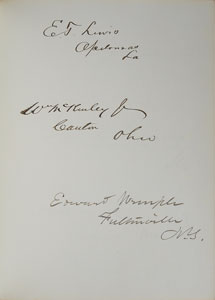 E T Lewis
Opelousas
La
Wm McKinley Jr
Canton
Ohio
Edward Wemple
Fultonville
N.Y.